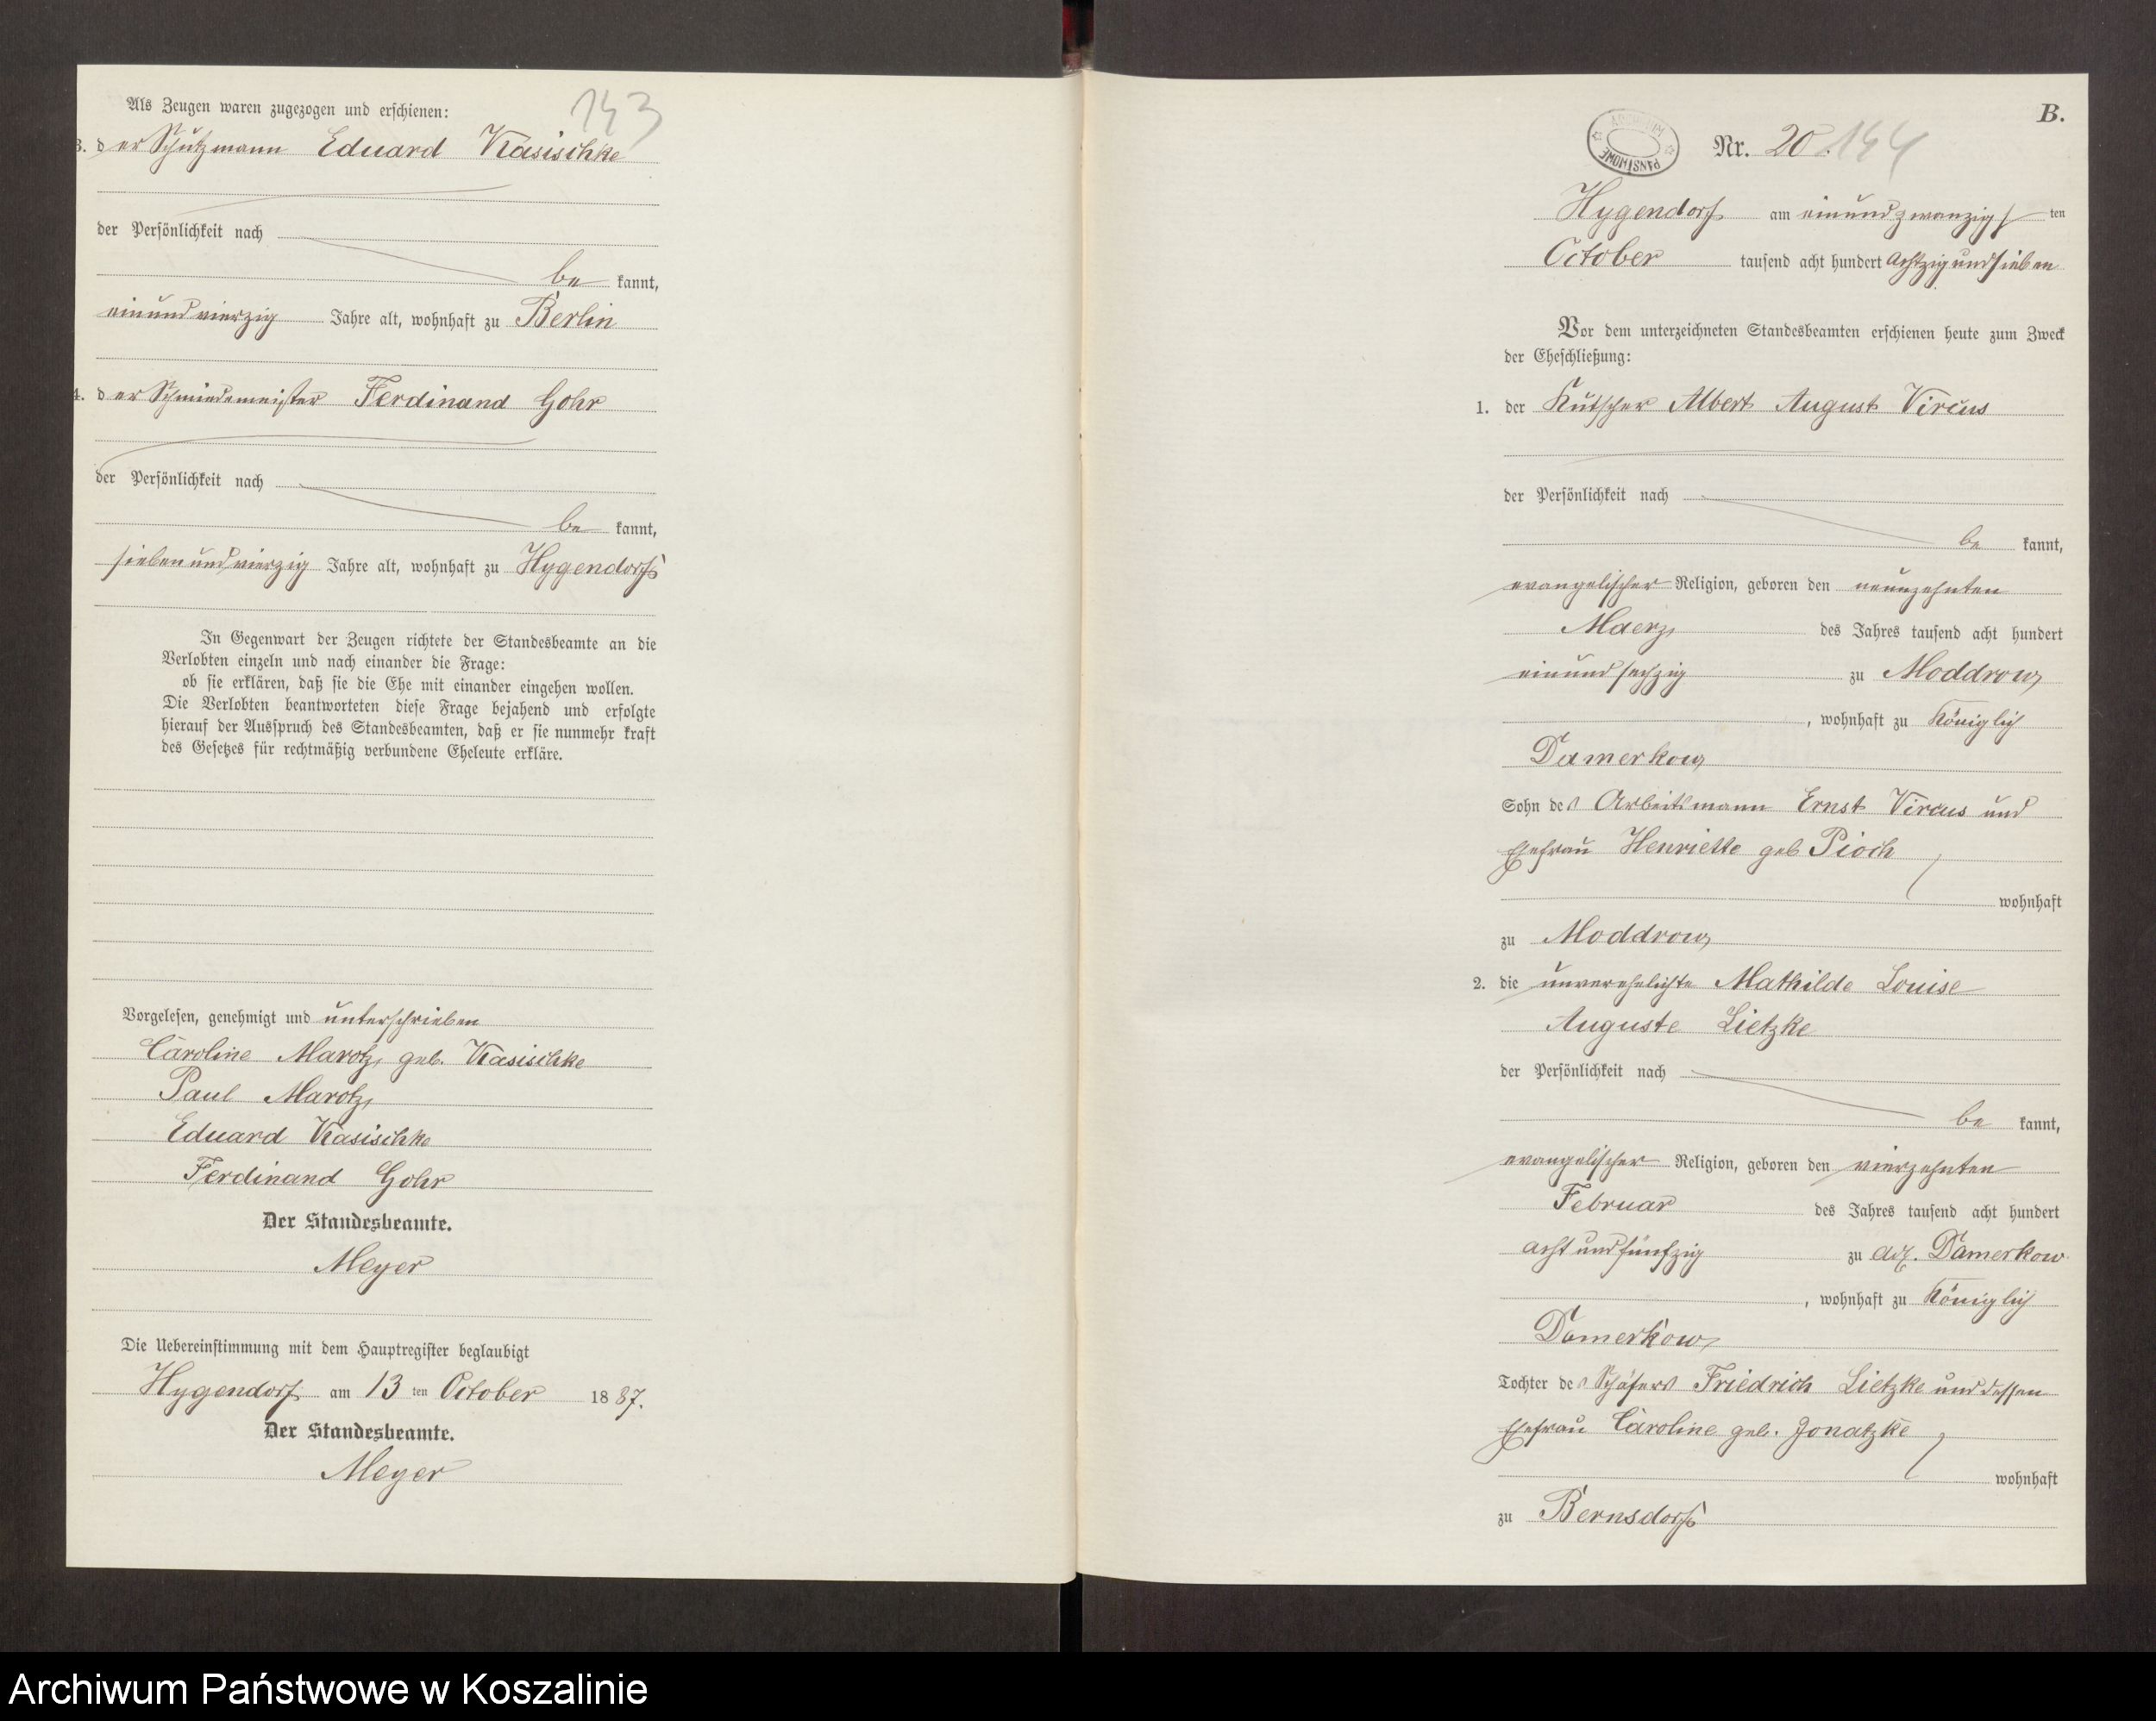 143
Als Zeugen waren zugezogen und erschienen:
3. der Schutzmann Eduard Kasischke
der Persönlichkeit nach
be kannt,
einundvierzig Jahre alt, wohnhaft zu Berlin
4. der Schmiedemeister Ferdinand Gohr
der Persönlichkeit nach
be kannt,
siebenundvierzig Jahre alt, wohnhaft zu Hygendorf
In Gegenwart der Zeugen richtete der Standesbeamte an die
Verlobten einzeln und nach einander die Frage:
ob sie erklären, daß sie die Ehe mit einander eingehen wollen.
Die Verlobten beantworteten diese Frage bejahend und erfolgte
hierauf der Ausspruch des Standesbeamten, daß er sie nunmehr kraft
des Gesetzes für rechtmäßig verbundene Eheleute erkläre.
Vorgelesen, genehmigt und unterschrieben
Caroline Marotz, geb. Kasischke
Paul Marotz,
Eduard Kasischke
Ferdinand Gohr
Der Standesbeamte.
Meyer
Die Uebereinstimmung mit dem Hauptregister beglaubigt
Hygendorf am 13 ten October 1887.
Der Standesbeamte.
Meyer
B.
ARCHIWUM PAŃSTWOWE
Nr. 20. 144
Hygendorf am einundzwanzigs ten
October tausend acht hundert achtzigundsieben
Vor dem unterzeichneten Standesbeamten erschienen heute zum Zweck
der Eheschließung:
1. der Kutscher Albert August Vircus
der Persönlichkeit nach
be kannt,
evangelischer Religion, geboren den neunzehnten
Maerz, des Jahres tausend acht hundert
einundsechzig zu Moddrow,
, wohnhaft zu Königlich
Damerkow,
Sohn des Arbeitsmann Ernst Vircus und
Ehefrau Henriette geb Pioch
wohnhaft
zu Moddrow,
2. die unverehelichte Mathilde Louise
Auguste Lietzke
der Persönlichkeit nach
be kannt,
evangelischer Religion, geboren den vierzehnten
Februar des Jahres tausend acht hundert
acht und fünfzig zu adl. Damerkow
, wohnhaft zu Königlich
Damerkow,
Tochter des Schäfers Friedrich Lietzke und dessen
Ehefrau Caroline geb. Jonatzke
wohnhaft
zu Bernsdorf
Archiwum Państwowe w Koszalinie